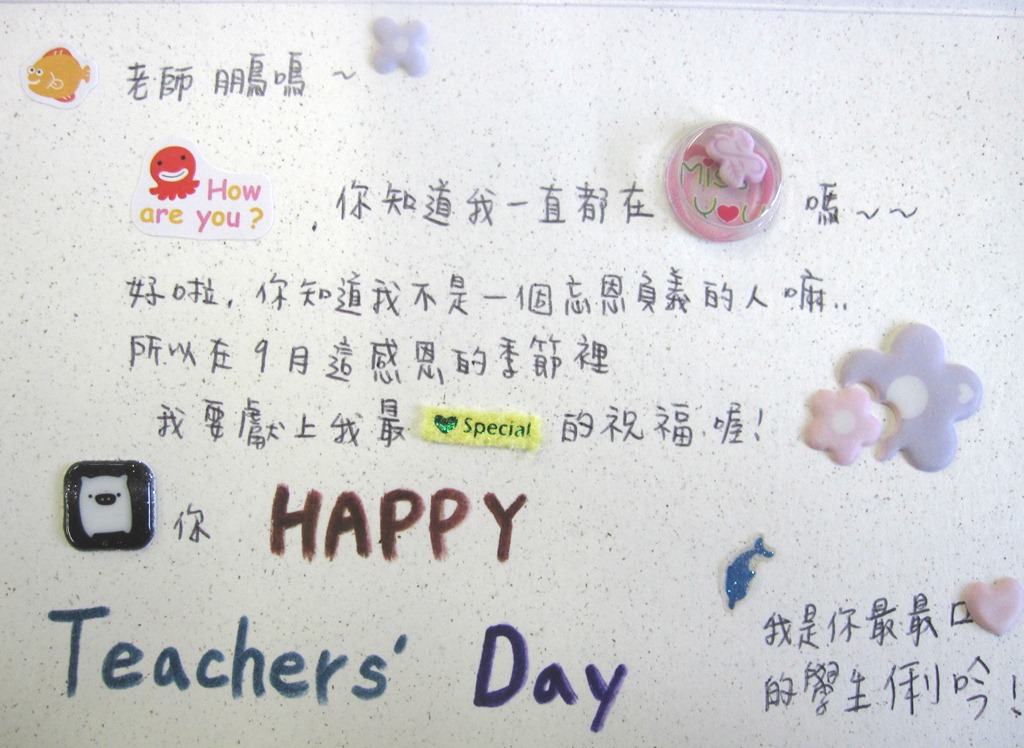 老師 鵬鳴~
How are you?
你知道我一直都在 Miss You 嗎~~
好啦,你知道我不是一個忘恩負義的人嘛..
所以在9月這感恩的季節裡
我要獻上我最 Special 的祝福喔!
你 HAPPY
Teachers' Day
我是你最最口
的學生俐吟!